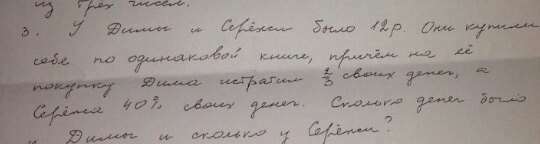 из трёх чисел.
3. У Димы и Серёжи было 12р. Они купили
себе по одинаковой книге, причём на её
покупку Дима истратил 2/3 своих денег, а
Серёжа 40% своих денег. Сколько денег было
у Димы и сколько у Серёжи?